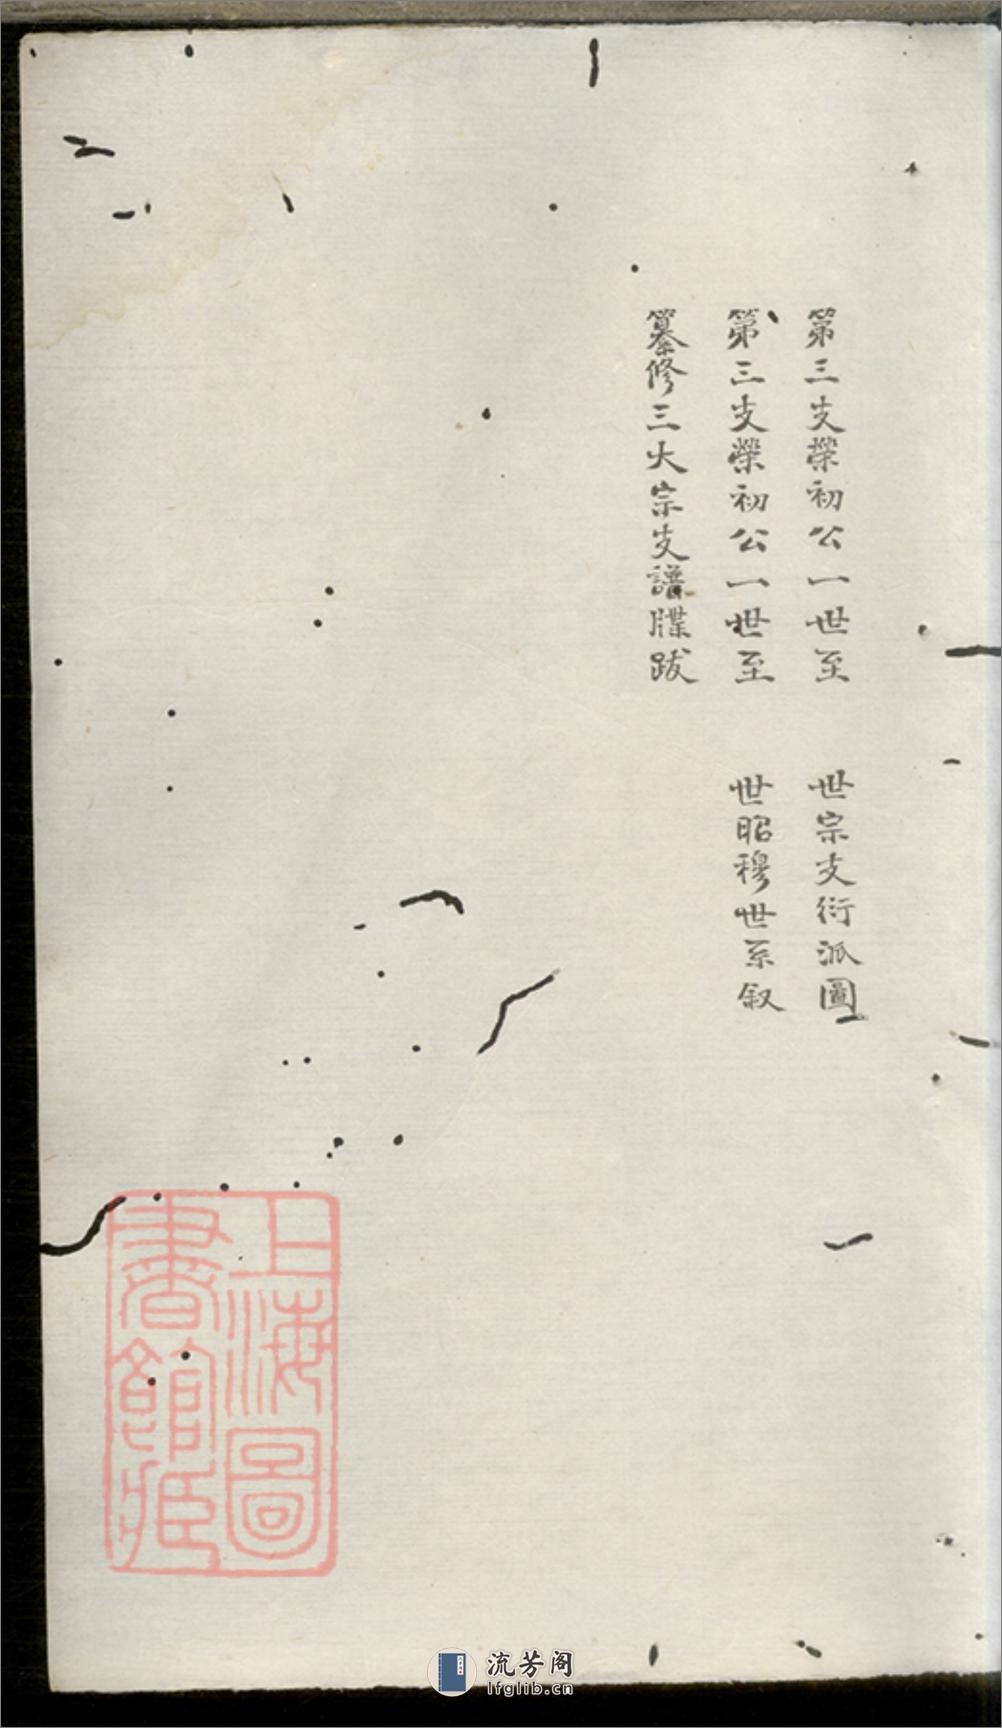 第三支榮初公一世至　世宗支衍派圖
第三支榮初公一世至　世昭穆世系叙
纂修三大宗支譜牒跋
上海圖
書館藏
流芳阁
lfglib.cn